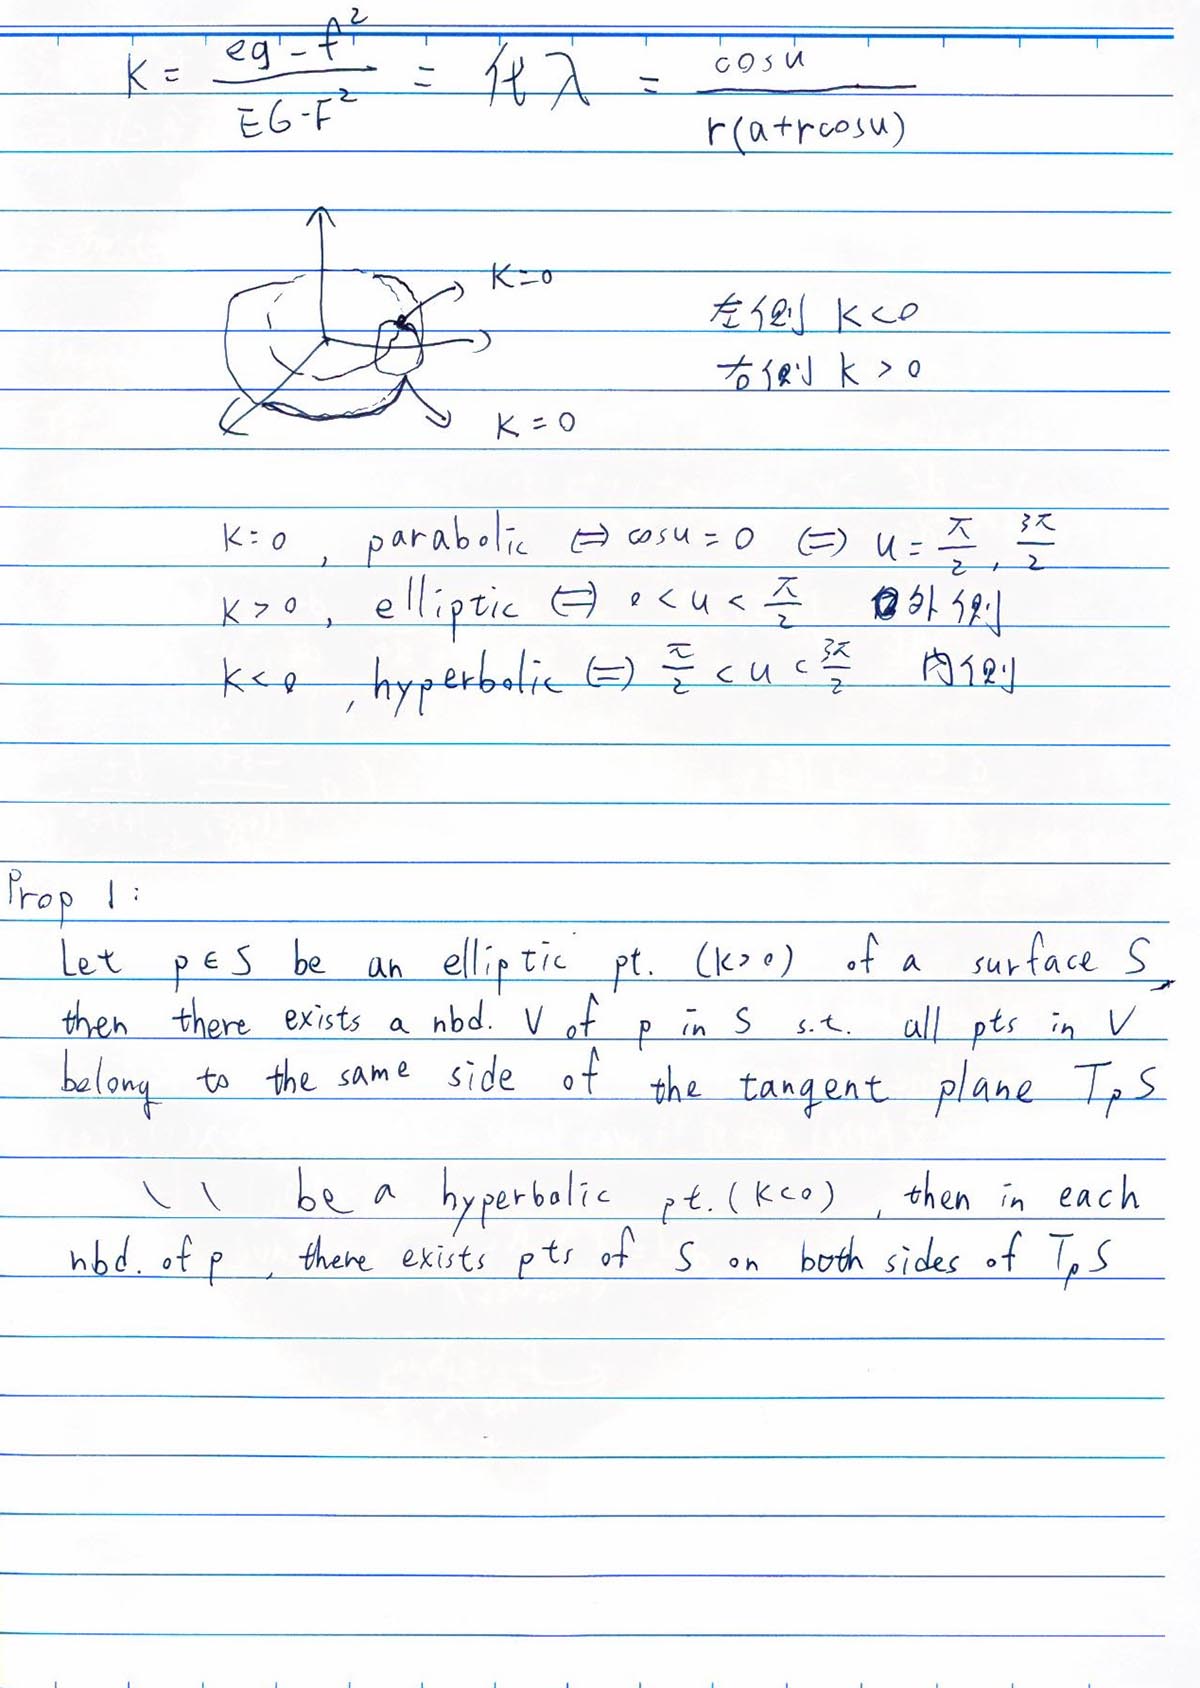 K = \frac{eg - f^2}{EG - F^2} = 代入 = \frac{cosu}{r(a+rcosu)}
K=0
左側 K<0
右側 K>0
K=0
K=0, parabolic ⇔ cosu = 0 ⇔ u = \frac{π}{2}, \frac{3π}{2}
K>0, elliptic ⇔ 0<u<\frac{π}{2} 外側
K<0, hyperbolic ⇔ \frac{π}{2}<u<\frac{3π}{2} 內側
Prop 1:
Let p∈S be an elliptic pt. (K>0) of a surface S,
then there exists a nbd. V of p in S s.t. all pts in V
belong to the same side of the tangent plane TpS
\ \ be a hyperbolic pt. (K<0), then in each
nbd. of p, there exists pts of S on both sides of TpS